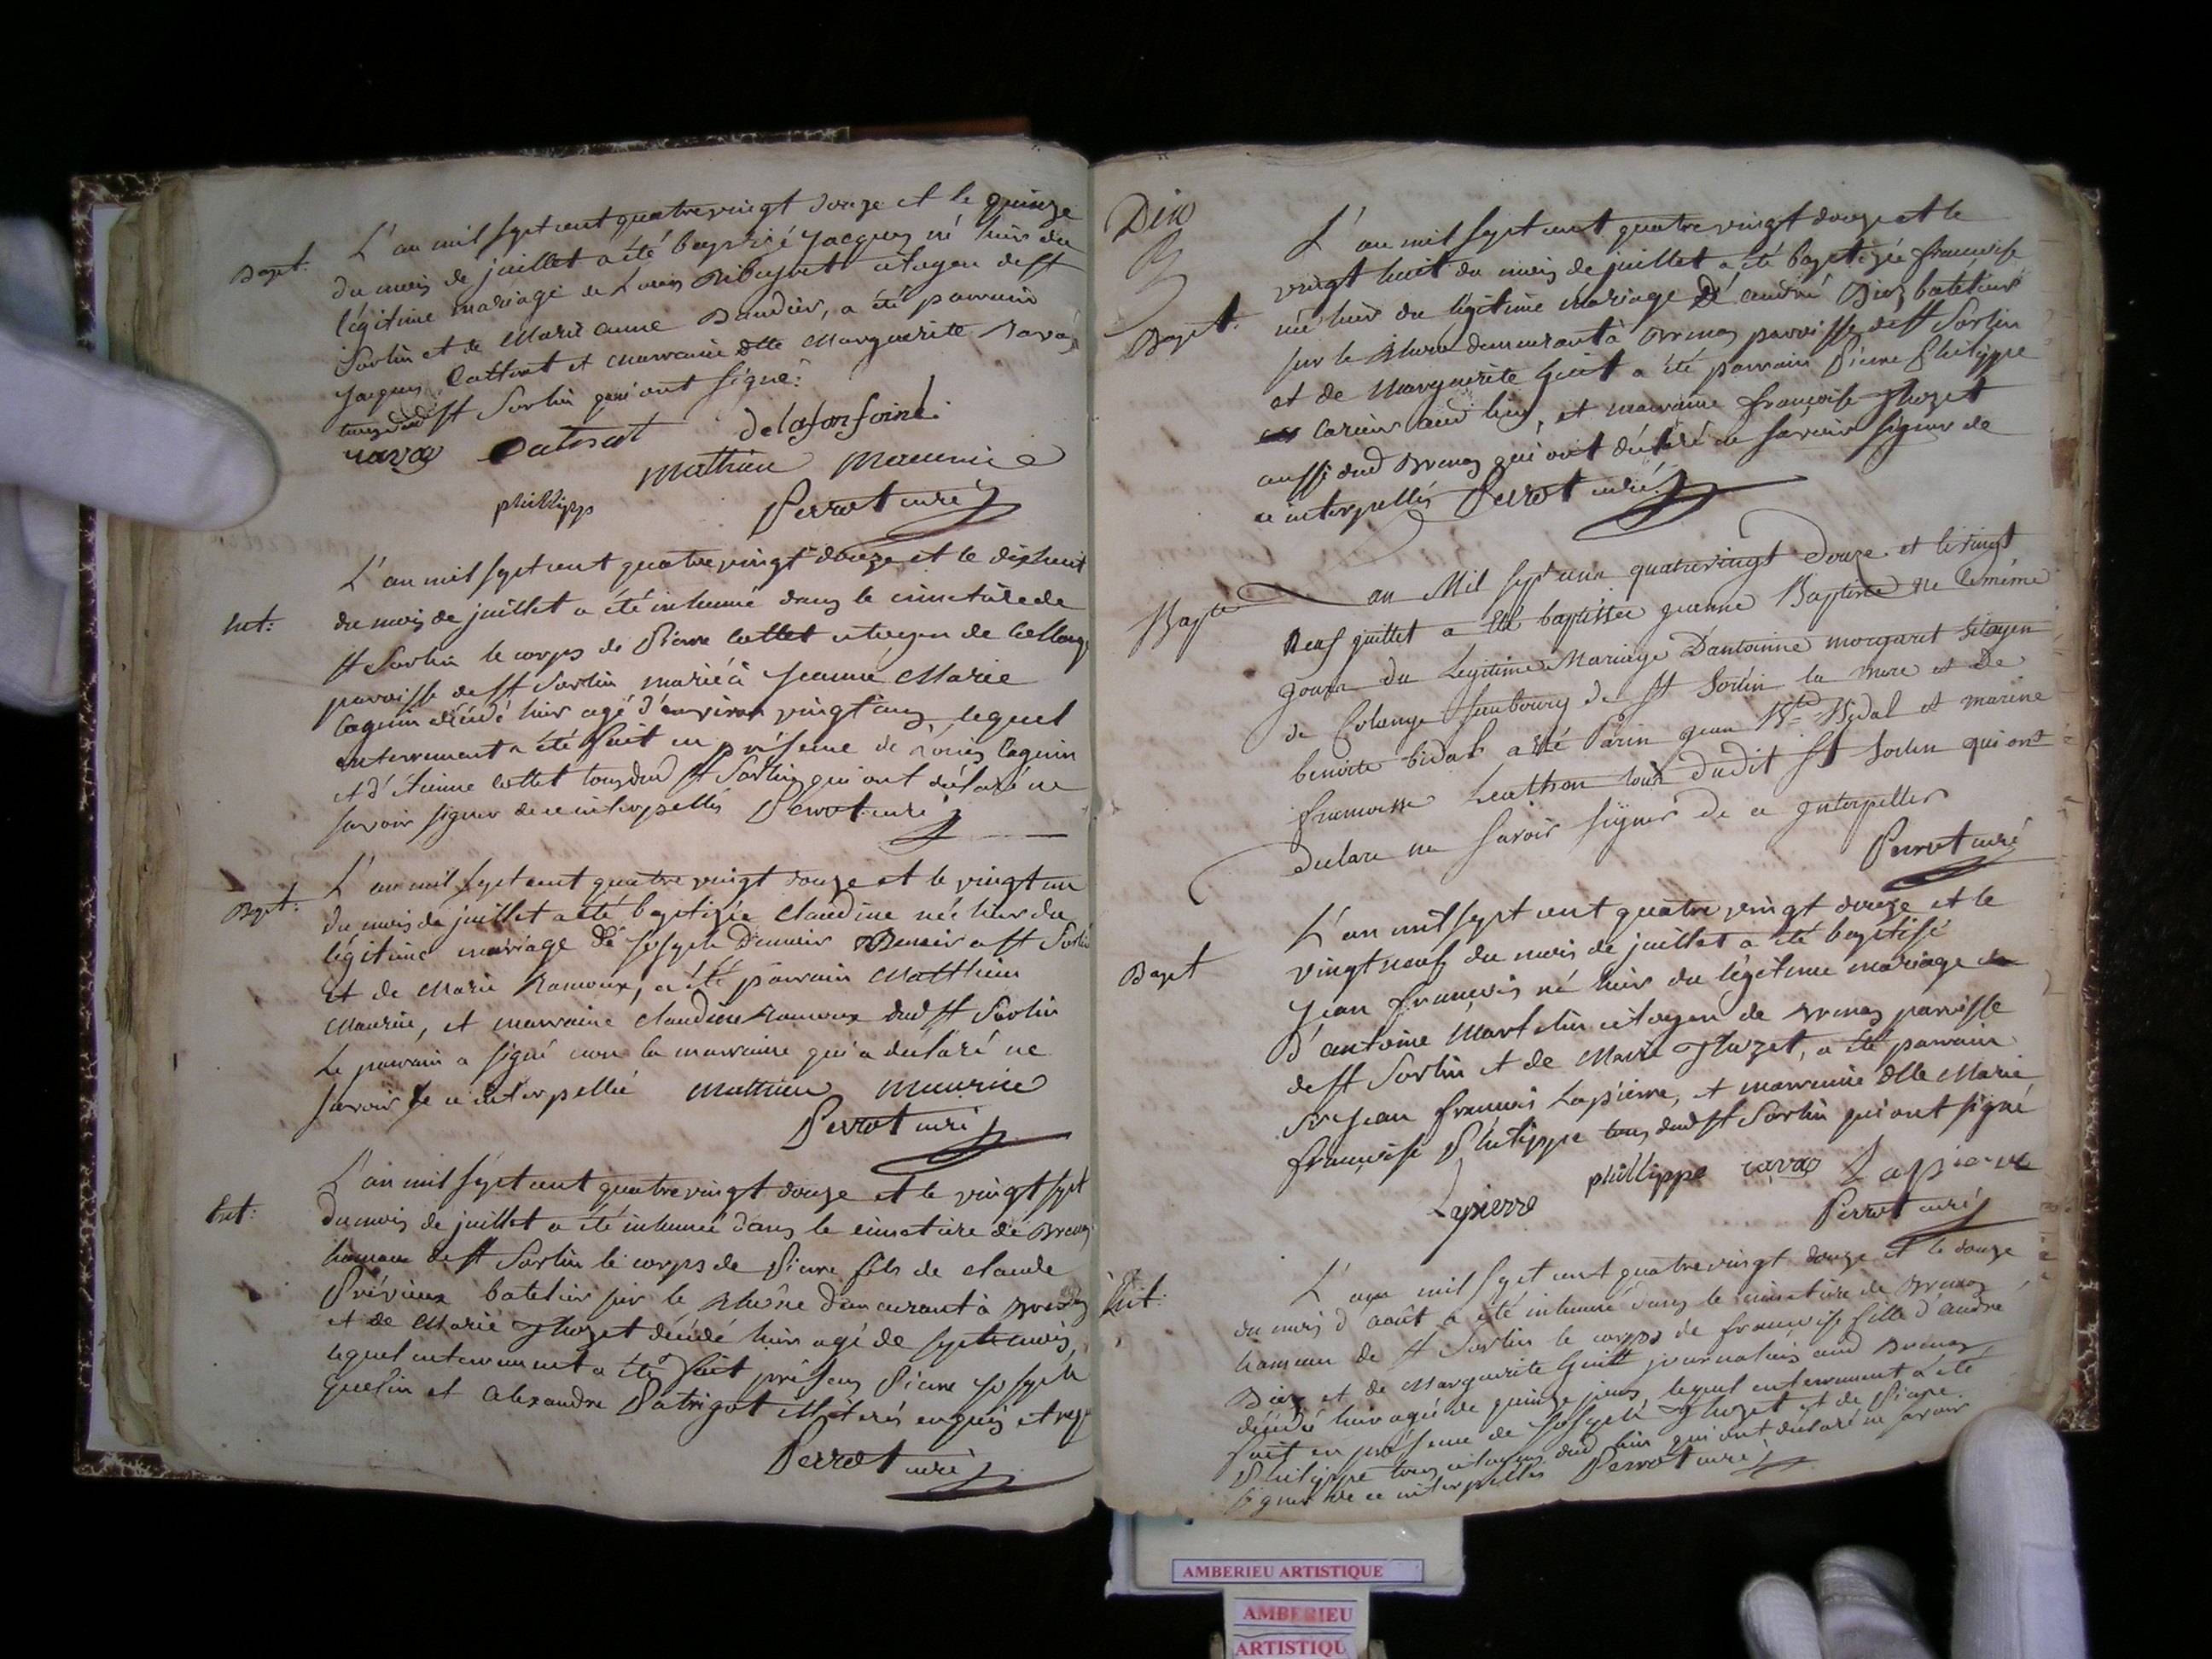 Bapt:
L'an mil sept cent quatrevingt douze et le quinze
du mois de juillet a été baptisé jacques né hier du
légitime mariage de Louis citoyen de st
Sorlin et de Marie anne Baudier, a été parrain
jaques Cattirat et marraine dlle Marguerite ravas
tous dud st Sorlin qui ont signé:
ravas delafonfoiné
Mathieu Maurice
philipp
Perrot curé
Ent:
L'an mil sept cent quatrevingt douze et le dixhuit
du mois de juillet a été inhumé dans le cimetiere de
st Sorlin le corps de Pierre Collet citoyen de Collonge
paroisse de st Sorlin marié à jeanne Marie
Cognin décédé hier agé d'environ vingt ans lequel
enterrement a été fait en présence de Cognin
et d'étienne Collet tous dud st Sorlin qui ont déclaré ne
savoir signer de ce interpellés Perrot curé
Bapt:
L'an mil sept cent quatre vingt douze et le vingt un
du mois de juillet a été baptizée Claudine née hier du
légitime mariage dé joseph a st Sorlin
et de Marie Ramoux, a été parrain Matthieu
Maurice, et marraine Claudine Ramoux dud st Sorlin
Le parrain a signé non la marraine qui a déclaré ne
savoir de ce interpellée Mathieu Maurice
Perrot curé
Ent:
L'an mil sept cent quatrevingt douze et le vingt sept
du mois de juillet a été inhumé dans le cimetiere de Brenaz
hameau de st Sorlin le corps de Pierre fils de Claude
Prévieux batelier sur le Rhône demeurant à Brenaz
et de Marie Thozet décédé hier agé de sept mois,
lequel enterrement a été fait présens Pierre joseph
et Alexandre Patrigot illitérés enquis et req
Perrot curé
Dix
Bapt.
L'an mil sept cent quatre vingt douze et le
vingt huit du mois de juillet a été baptizée francoise
née hier du légitime mariage d'andré Diez batelier
sur le Rhone demeurant à Brenaz paroisse de st Sorlin
et de Marguerite Guit a été parrain Pierre Philippe
carier aud lieu, et marraine françoise Thozet
aussi dud Brenaz qui ont déclaré ne savoir signer de
ce interpellés Perrot curé
Bapte
an Mil sept cent quatrevingt Douze et levingt
Neuf juillet a été baptissée jeanne Baptiste ne le même
jour du Legitime Mariage Dantoinne morgaret Sitoyen
de Colonge fauboury de st Sorlin la mere et De
benoite bidal a été Parin jean Bte Bidal et marine
fransoisse tous dudit st Sorlin qui ont
declare ne savoir signer de ce jnterpeller
Perrot curé
Bapt
L'an mil sept cent quatre vingt douze et le
vingt neuf du mois de juillet a été baptisé
jean françois né hier du légitime mariage
d'antoine Martelin citoyen de Brenaz paroisse
de st Sorlin et de Marie Thozet, a été parrain
Sr jean françois Lapierre, et marraine dlle Marie
françoise Philippe tous dud st Sorlin qui ont signé
Lapierre phillippe ravas Lapierre
Perrot curé
Ent:
L'an mil sept cent quatrevingt douze et le douze
du mois d'août a été inhumé dans le cimetiere de Brenaz
hameau de st Sorlin le corps de françoise fille d'andré
Diez et de Marguerite Guitt journaliers aud Brenaz
décédé hier agée de quinze jours, lequel enterrement a été
fait en présence de joseph Thozet et de Pierre
Philippe tous citoyens dud lieu qui ont déclaré ne savoir
signer de ce interpellés Perrot curé
AMBERIEU ARTISTIQUE
AMBERIEU
ARTISTIQU